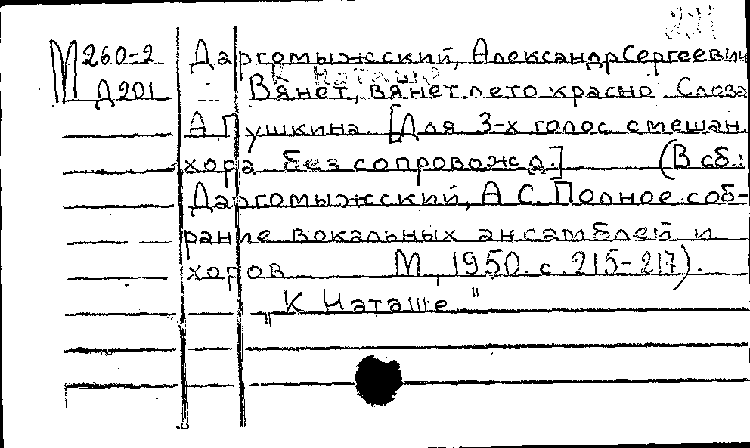 М260-2 Даргомыжский, Александр Сергеевич
К Наташе
Д201 Вянет, вянет лето красно. Слова
А. Пушкина. [Для 3-х голос смешан.
хора без сопровожд.] (В сб.:
Даргомыжский, А.С. Полное соб-
рание вокальных ансамблей и
хоров М., 1950. с. 215-217).
"К Наташе"